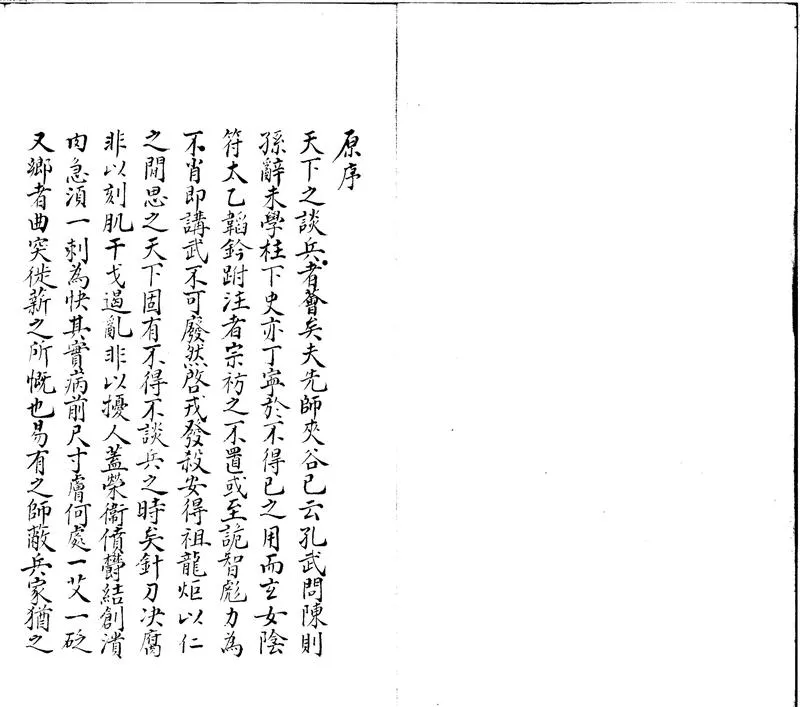 原序
天下之談兵者薈矣夫先師夾谷已云孔武問陳則
孫辭未學柱下史亦丁寧於不得已之用而玄女陰
符太乙韜鈐跗注者宗祊之不置或至詭智彪力為
不肖即講武不可廢然啓戎發殺安得祖龍炬以仁
之閒思之天下固有不得不談兵之時矣針刀决腐
非以刻肌干戈遏亂非以擾人蓋榮衞僨欝結創潰
肉急須一刺為快其實病前尺寸膚何處一艾一砭
又鄉者曲突徙薪之所慨也易有之師蔽兵家猶之